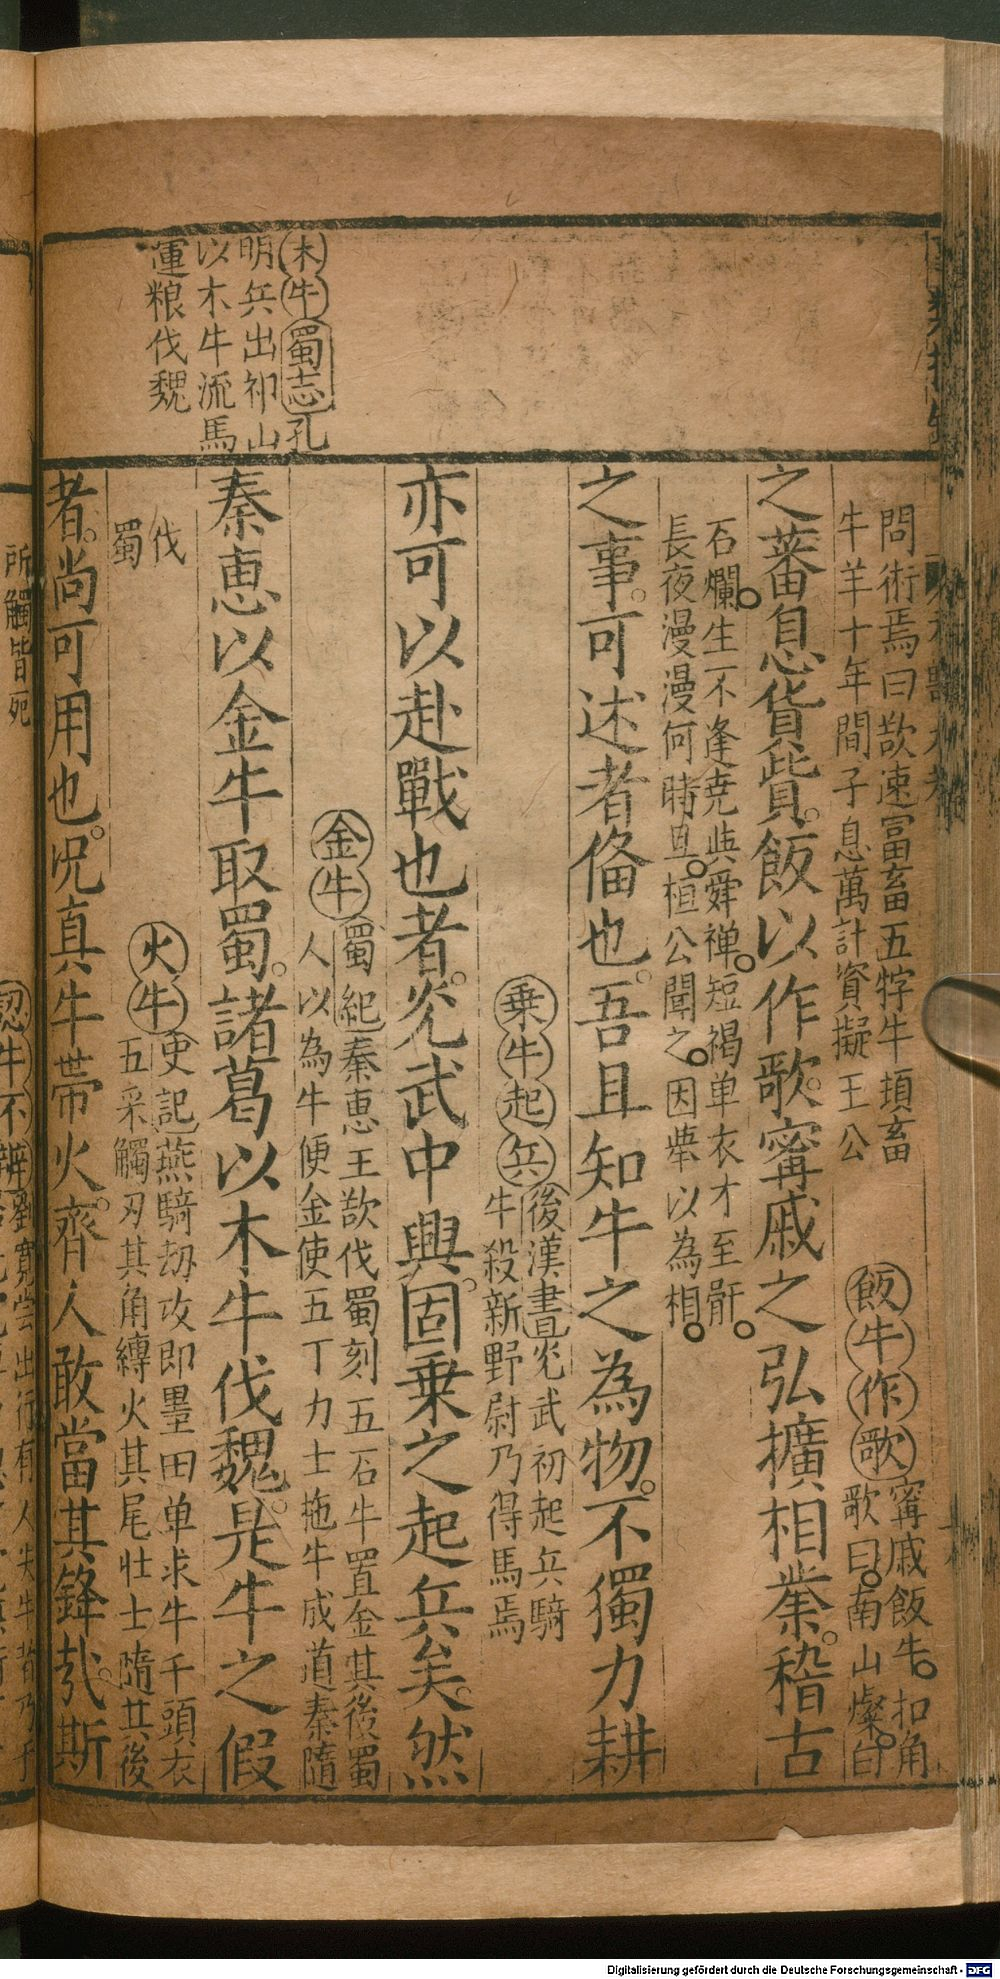 木牛蜀志孔
明兵出祁山
以木牛流馬
運粮伐魏
問術焉曰欲速富畜五牸牛湏畜
牛羊十年間子息萬計資擬王公
飯牛作歌
寗戚飯牛扣角
歌曰南山燦白
之蕃息貨貲飯以作歌寗戚之弘擴相業稽古
石爛生不逢尭與舜禅短褐单衣才至骭
長夜漫漫何時旦桓公聞之因舉以為相
之事可述者俻也吾且知牛之為物不獨力耕
乗牛起兵
後漢書光武初起兵騎
牛殺新野尉乃得馬焉
亦可以赴戰也者光武中興固乗之起兵矣然
金牛
蜀紀秦恵王欲伐蜀刻五石牛置金其後蜀
人以為牛便金使五丁力士拖牛成道秦隨
秦恵以金牛取蜀諸葛以木牛伐魏是牛之假
伐
蜀
火牛
史記燕騎刼攻即墨田单求牛千頭衣
五采觸刃其角縛火其尾壮士隨其後
者尚可用也况真牛帯火齊人敢當其鋒㢤斯
所觸皆死
認牛不辨
劉寛甞出行有人失牛者乃于
Digitalisierung gefördert durch die Deutsche Forschungsgemeinschaft - DFG